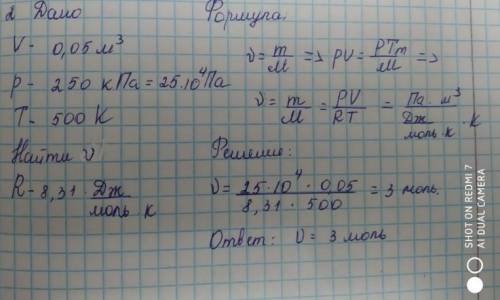 2 Дано
V- 0,05 м³
p- 250 кПа = 25·10⁴Па
T- 500 К
Найти ν
R- 8,31 · Дж / моль К
Формула:
ν = m/M => pV = PTm/M =>
ν = m/M = PV/RT = Па · м³ / Дж/моль·К · К
Решение:
ν = 25·10⁴ · 0,05 / 8,31 · 500 = 3 моль.
Ответ: ν = 3 моль
SHOT ON REDMI 7
AI DUAL CAMERA